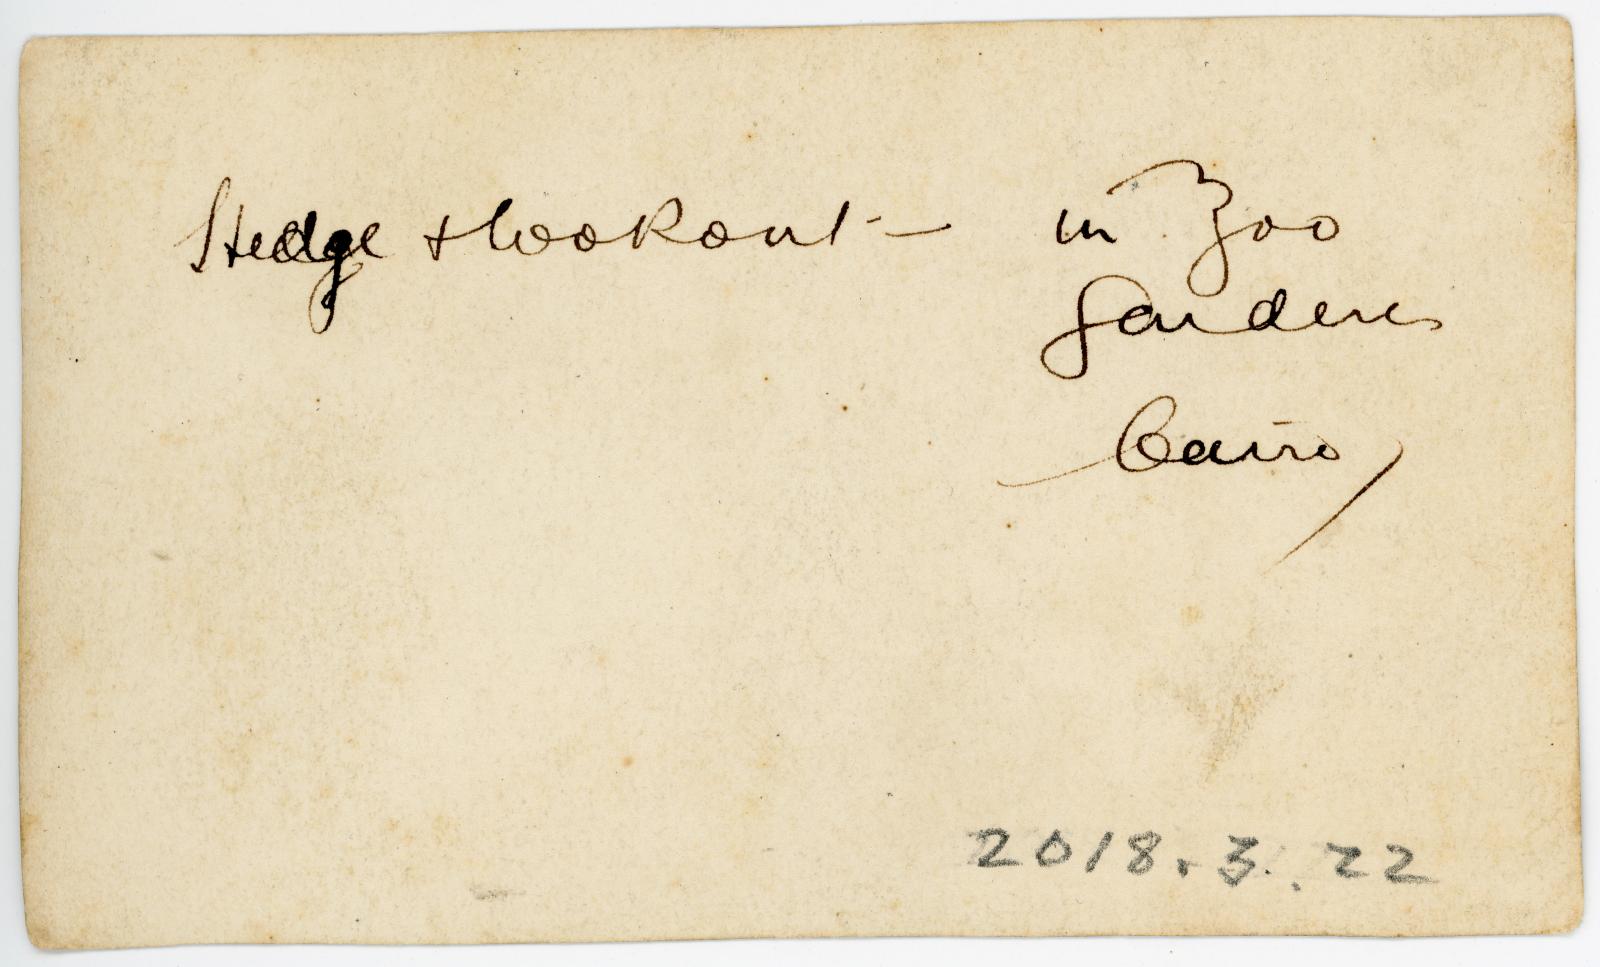 Hedge + Lookout — in Zoo
Gardens
Cairo
2018.3.22